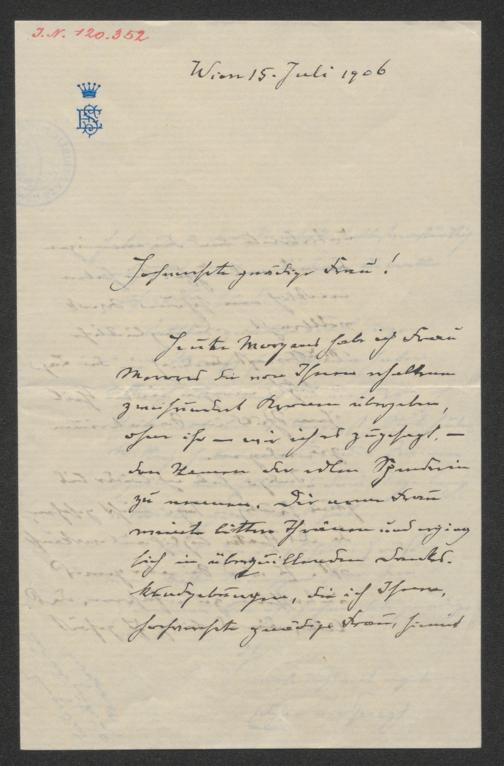 J.N. 120.352
Wien 15. Juli 1906
Hochverehrte gnädige Frau!
Heute Morgens habe ich Frau
die von Ihnen erhaltenen
zweihundert Kronen übergeben,
ohne ihr – wie ich es zugesagt, –
den Namen der edlen Spenderin
zu nennen. Die arme Frau
weinte bittere Thränen und erging
sich in überquellenden Dankes-
kundgebungen, die ich Ihnen,
hochverehrte gnädige Frau, hiemit